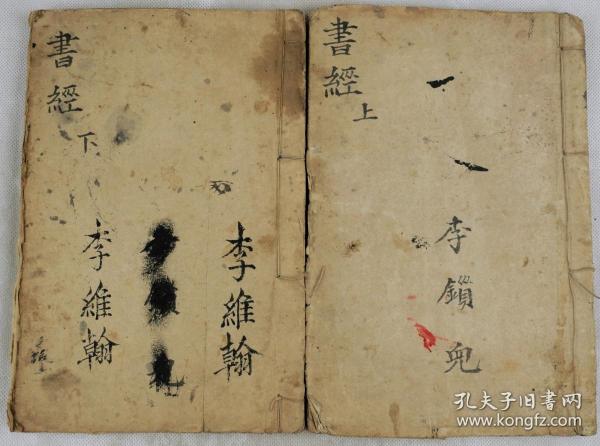 書經
上
李鎖兜
書經
下
李維翰
李維翰
孔夫子旧书网
www.kongfz.com